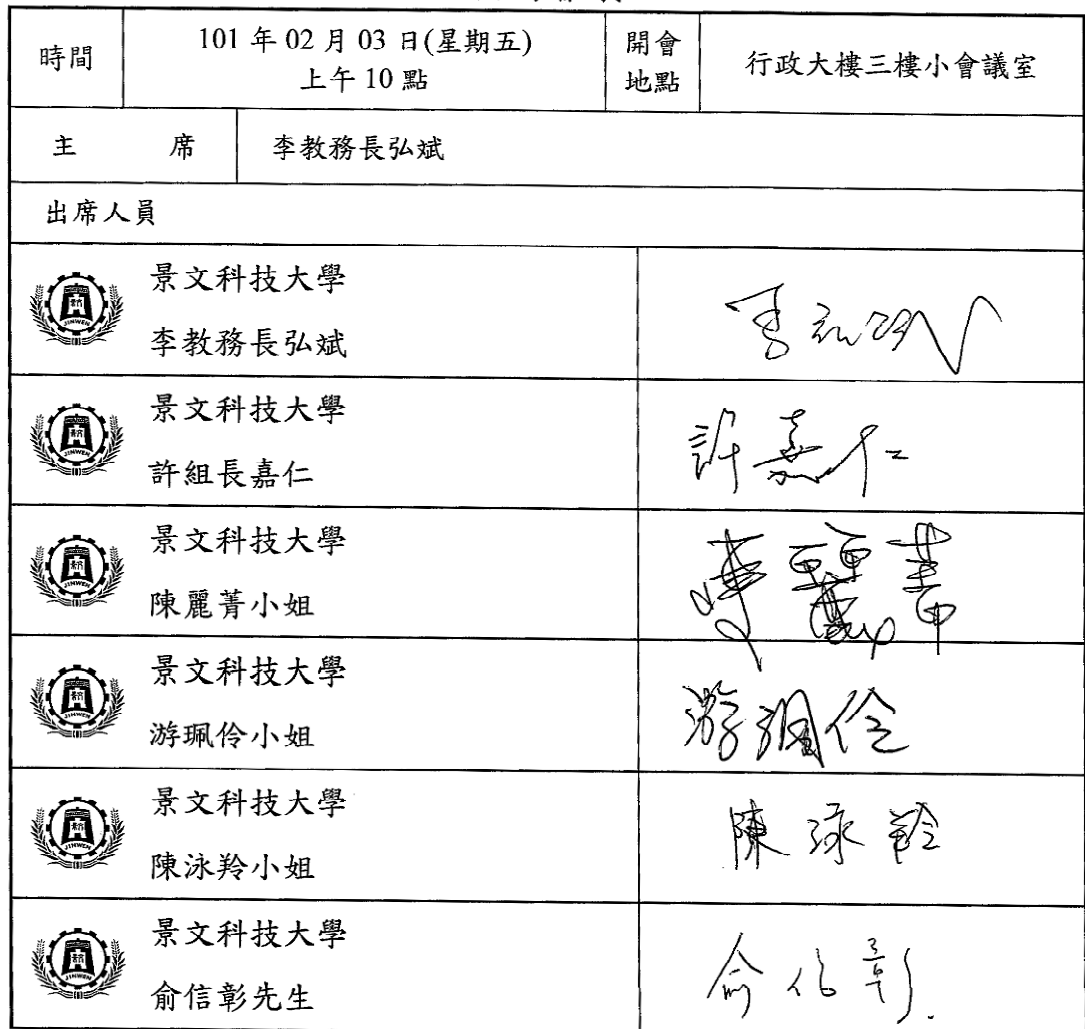 時間
101 年 02 月 03 日(星期五)
上午 10 點
開會
地點
行政大樓三樓小會議室
主 席
李教務長弘斌
出席人員
JINWEN
景文科技大學
李教務長弘斌
李弘斌
JINWEN
景文科技大學
許組長嘉仁
許嘉仁
JINWEN
景文科技大學
陳麗菁小姐
陳麗菁
JINWEN
景文科技大學
游珮伶小姐
游珮伶
JINWEN
景文科技大學
陳泳羚小姐
陳泳羚
JINWEN
景文科技大學
俞信彰先生
俞信彰